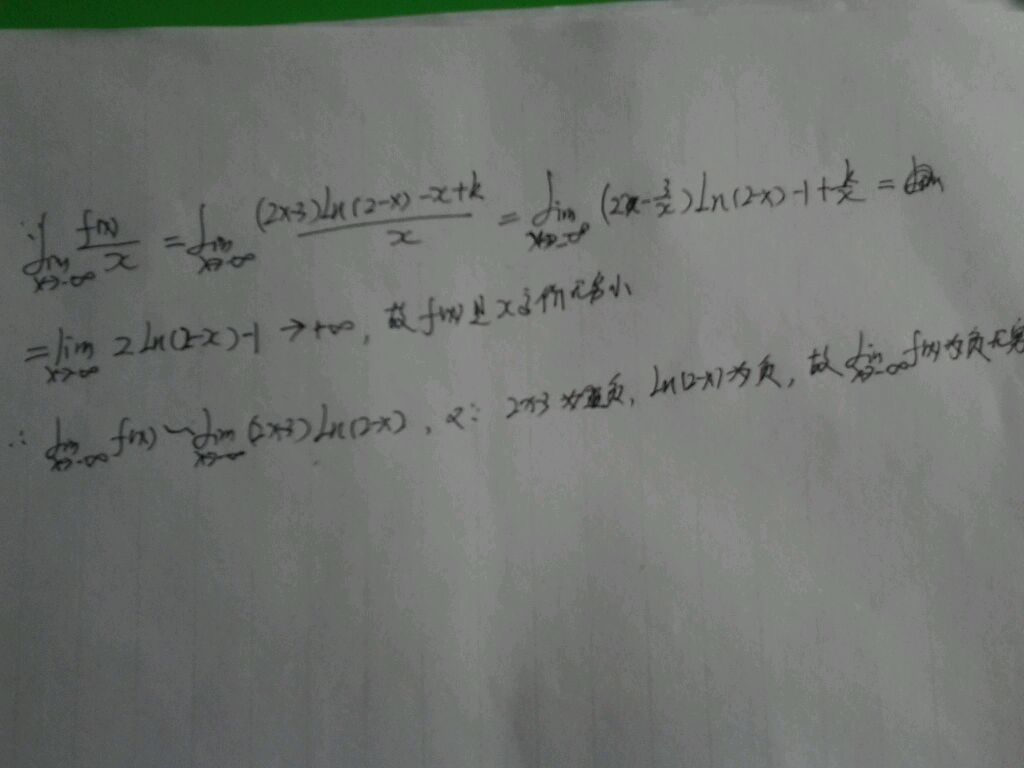 ∵ lim x→-∞ f(x)/x = lim x→-∞ ((2x-3)ln(2-x)-x+k)/x = lim x→-∞ (2-3/x)ln(2-x)-1+k/x =
= lim x→∞ 2ln(2-x)-1 → +∞, 故f(x)是x高阶无穷小
∴ lim x→-∞ f(x) ~ lim x→-∞ (2x-3)ln(2-x), 又∵ 2x-3为负, ln(2-x)为负, 故lim x→-∞ f(x)为负无穷